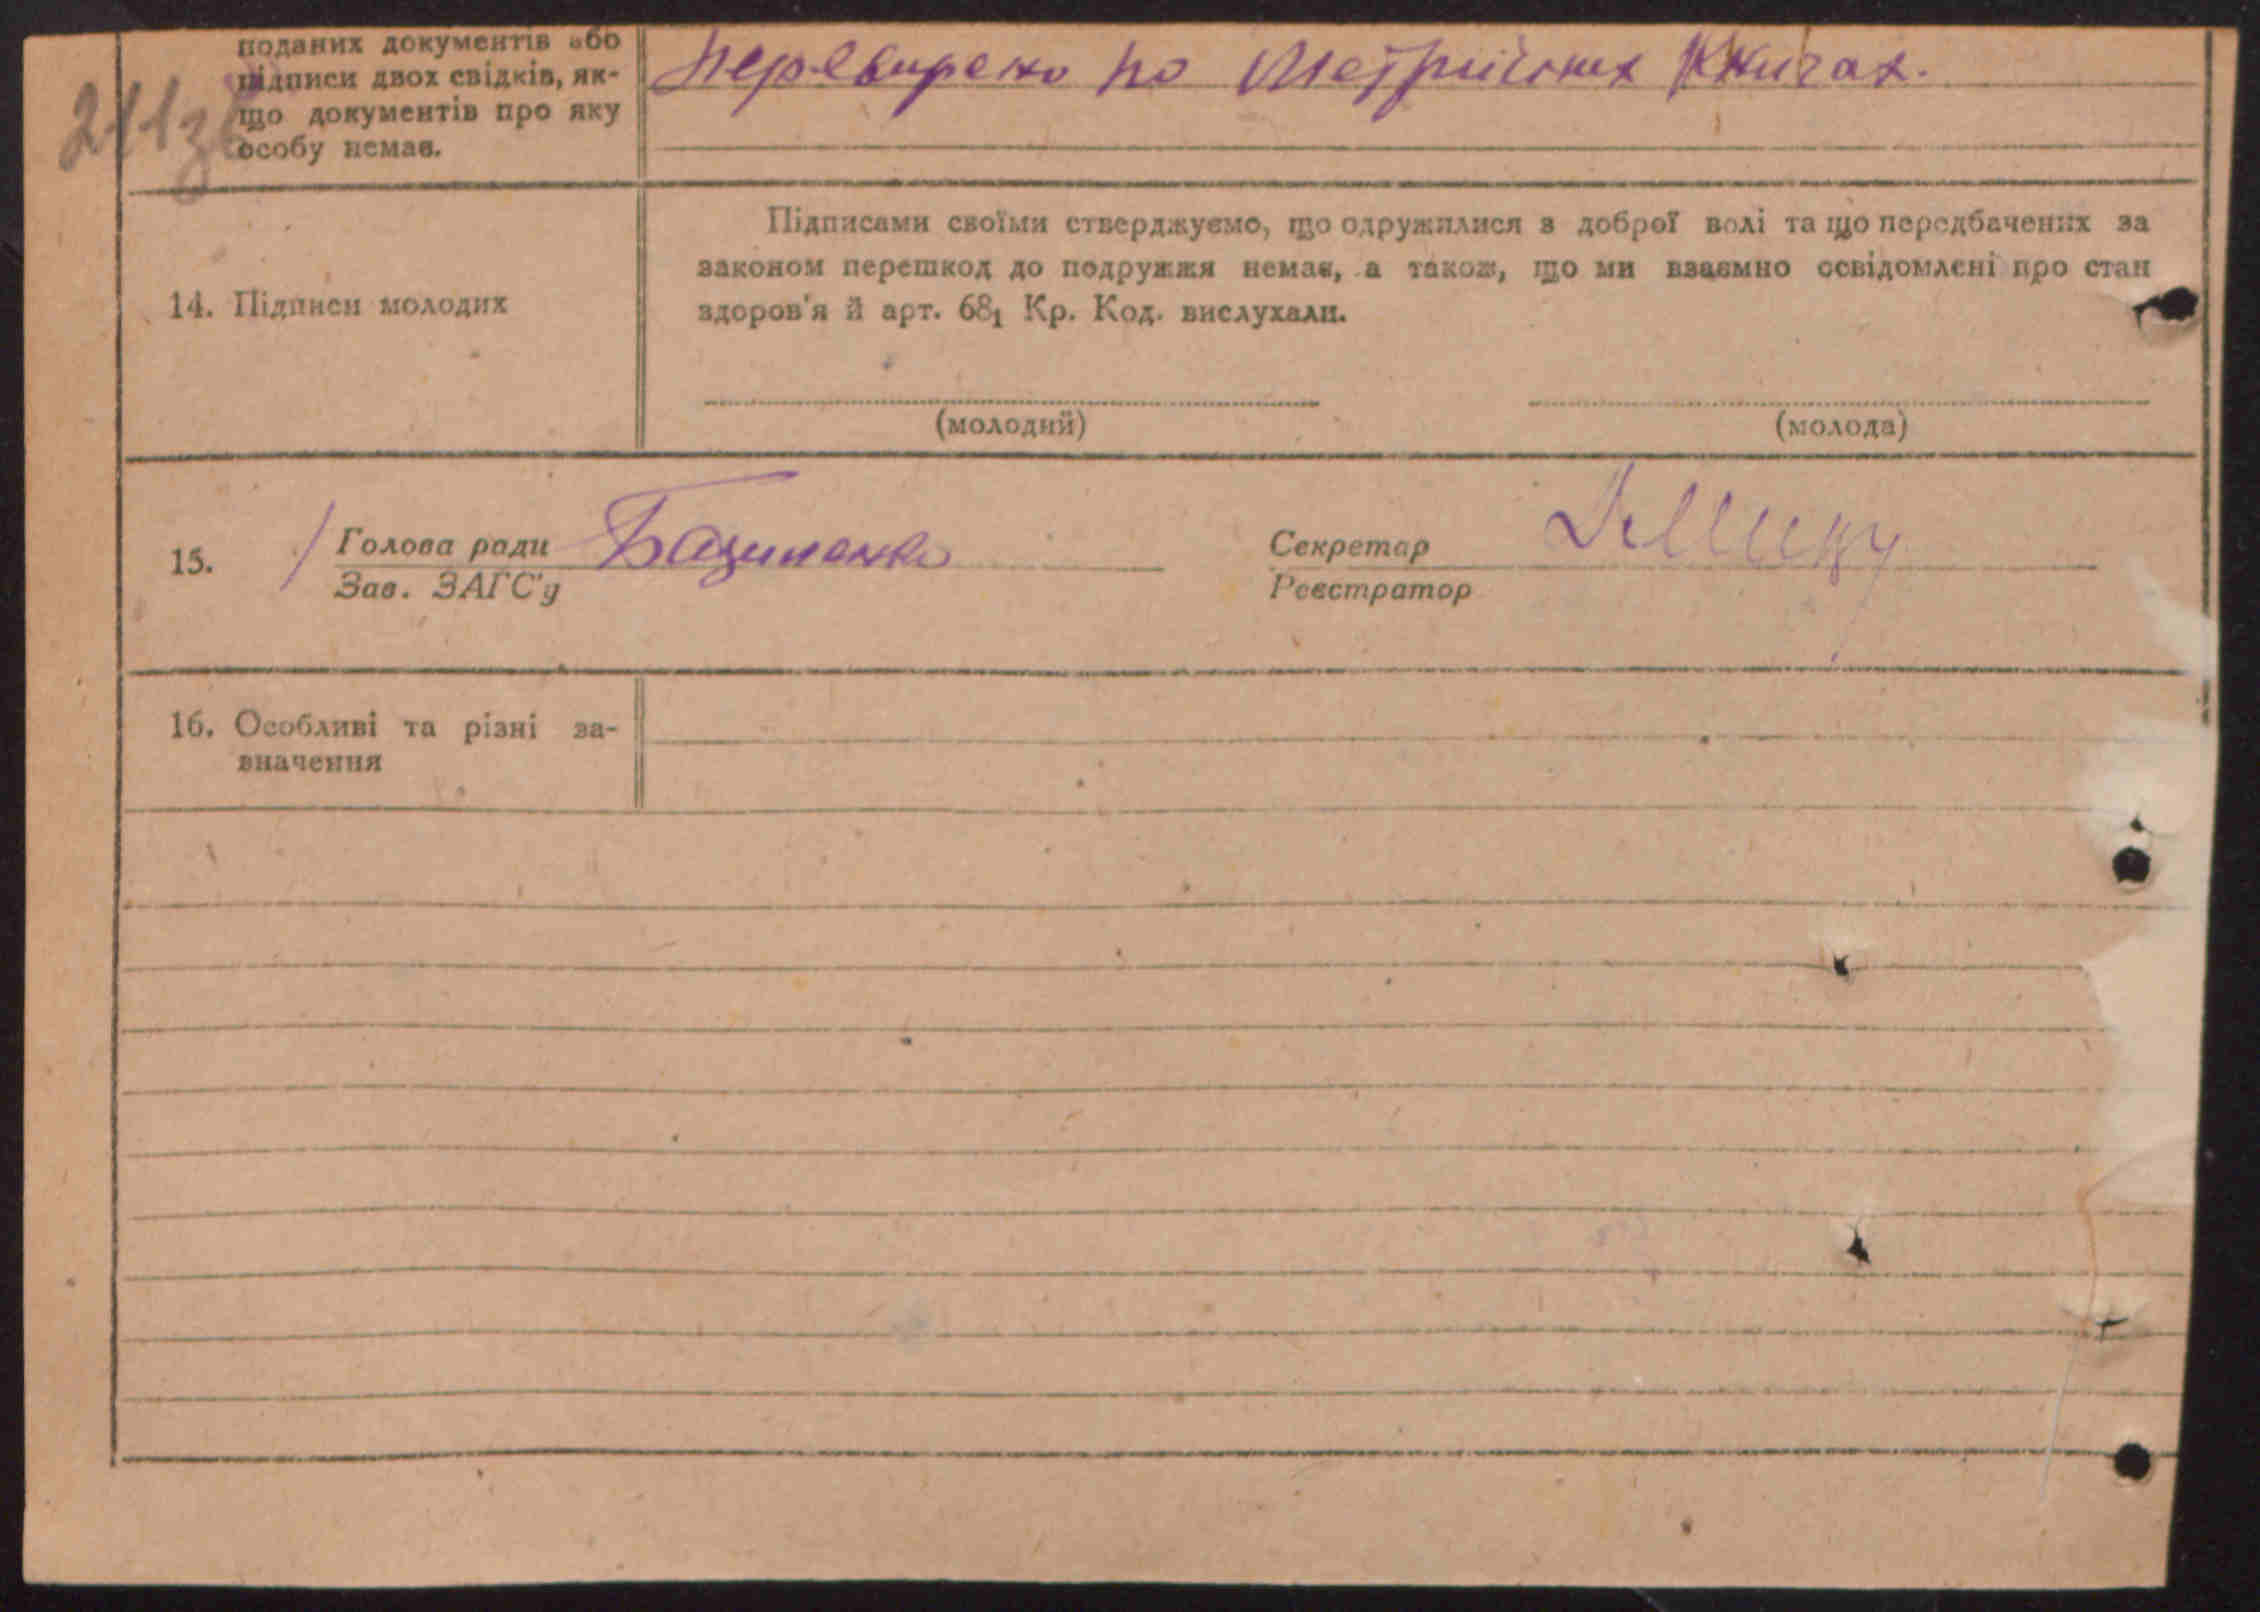 поданих документів або
підписи двох свідків, як-
що документів про яку
особу немає.
Перевирено по Метрийских Книгах.
14. Підписи молодих
Підписами своїми стверджуємо, що одружилися з доброї волі та що передбачених за
законом перешкод до подружжя немає, а також, що ми взаємно освідомлені про стан
здоров'я й арт. 68₁ Кр. Код. вислухали.
(молодий) (молода)
15. Голова ради Секретар
Зав. ЗАГС'у Реєстратор
16. Особливі та різні за-
значення